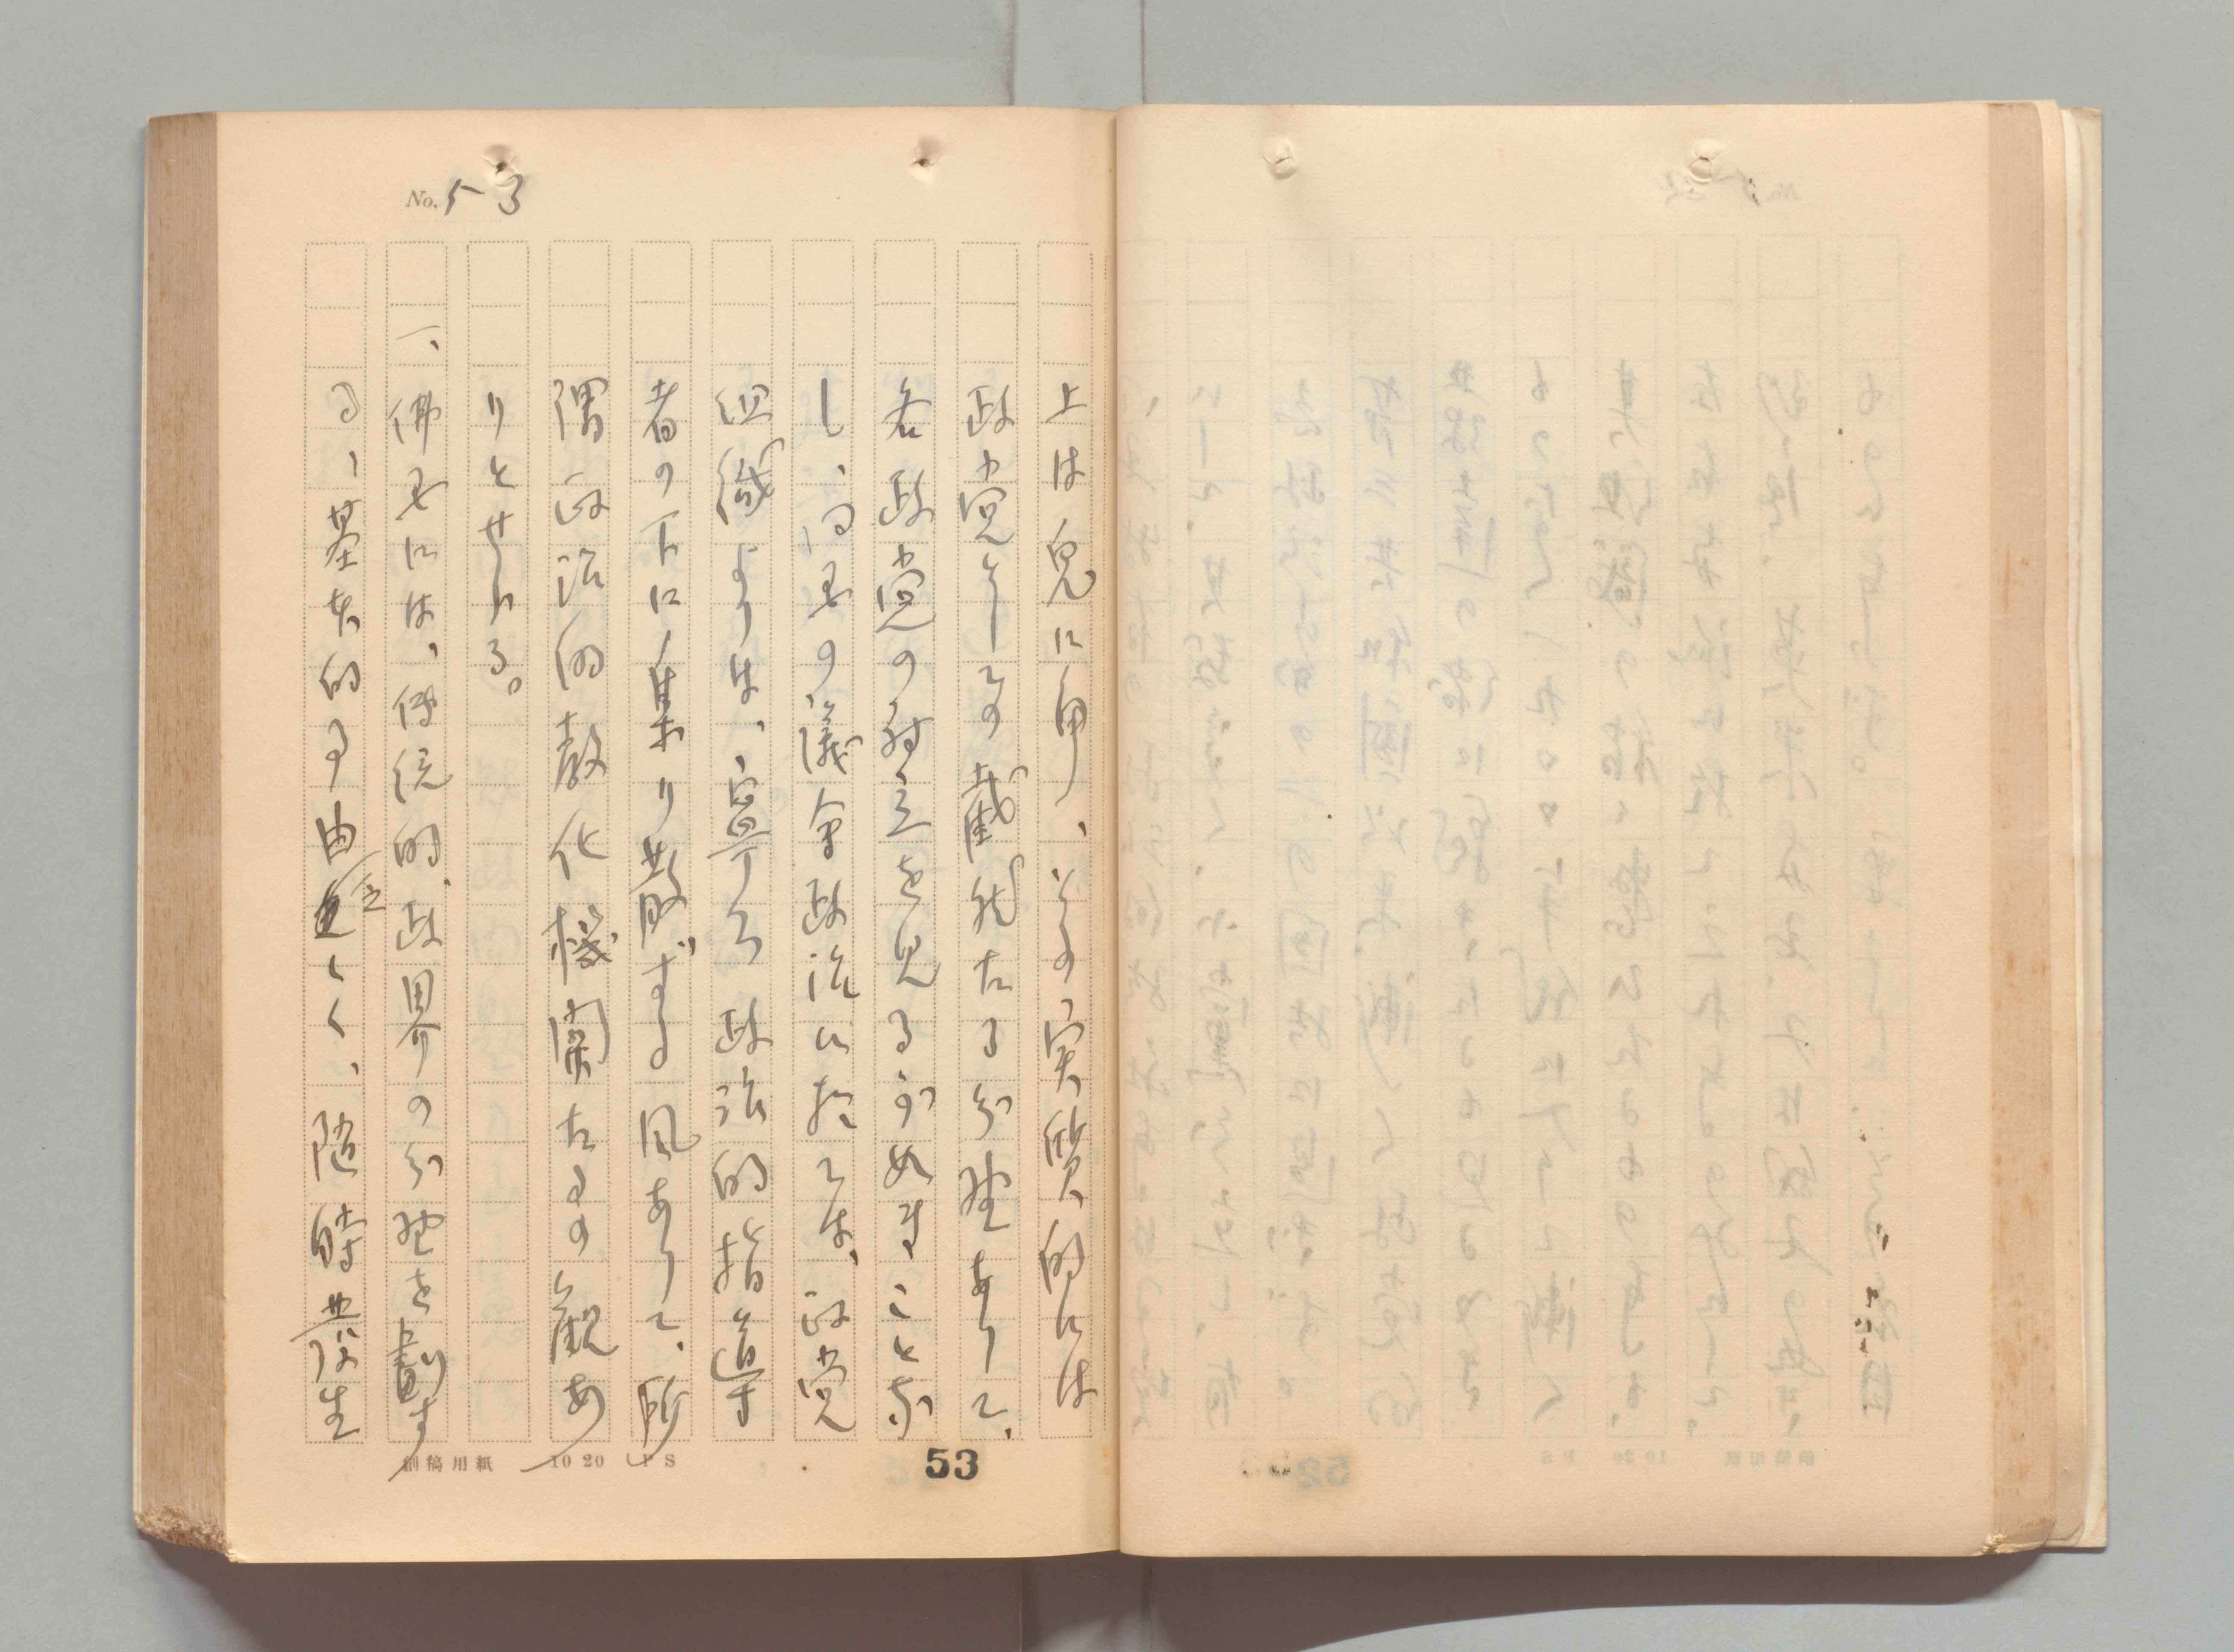 No. 53
上は兎に角、その実質的には
政党としての截然たる分野ありて、
各政党の対立を見るが如きことな
し、同国の議会政治に於ては、政党
組織よりは、寧ろ政治的指導
者の下に集り散ずる風ありて、所
謂政治的教化機関たるの観あ
りとせらる。
一、佛国には、傳統的、政界の分野を劃す
る、基本的 由 く、随時発生
創稿用紙 10 20 PS
53